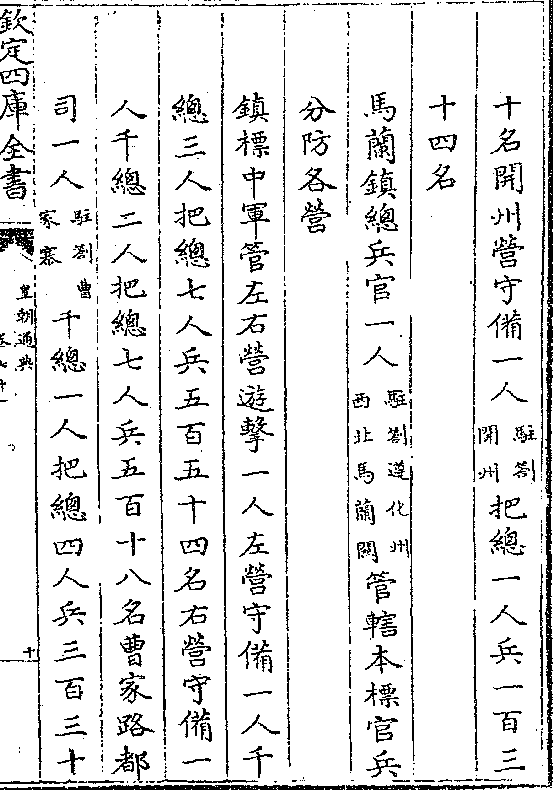 十名開州營守備一人駐劄開州把總一人兵一百三
十四名
馬蘭鎮總兵官一人駐劄遵化州西北馬蘭關管轄本標官兵
分防各營
鎮標中軍管左右營遊擊一人左營守備一人千
總三人把總七人兵五百五十四名右營守備一
人千總二人把總七人兵五百十八名曹家路都
司一人駐劄曹家寨千總一人把總四人兵三百三十
欽定四庫全書
皇朝通典
十